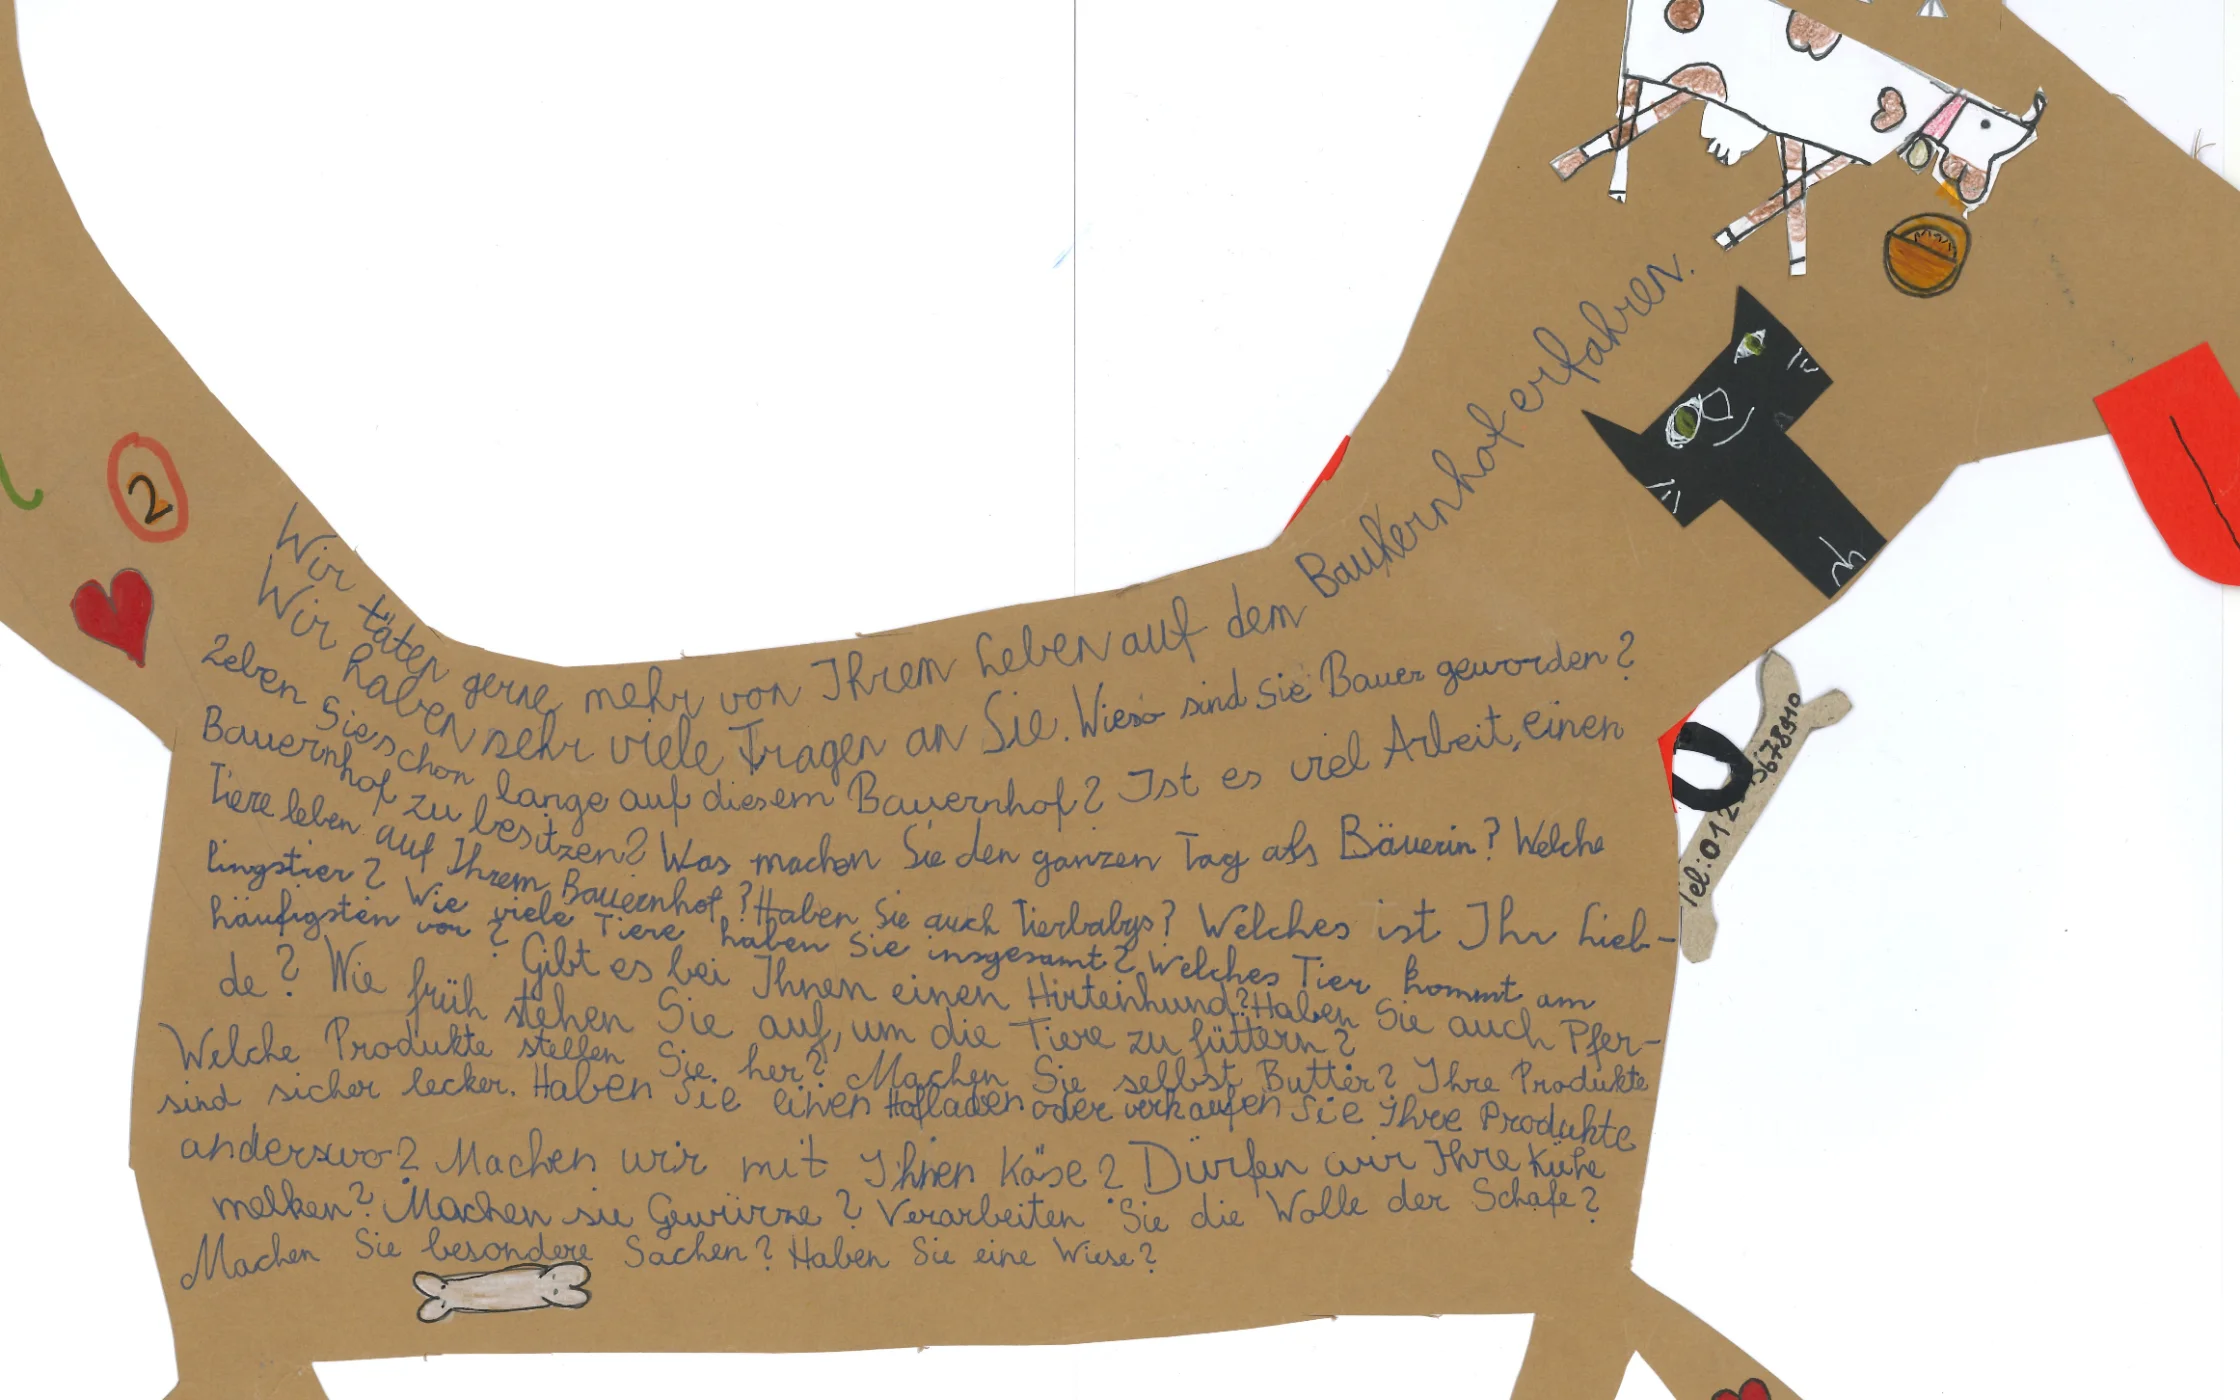 2
Wir täten gerne mehr von Ihrem Leben auf dem Bauernhof erfahren.
Wir haben sehr viele Fragen an Sie. Wieso sind Sie Bauer geworden?
Leben Sie schon lange auf diesem Bauernhof? Ist es viel Arbeit, einen
Bauernhof zu besitzen? Was machen Sie den ganzen Tag als Bäuerin? Welche
Tiere leben auf Ihrem Bauernhof? Haben Sie auch Tierbabys? Welches ist Ihr Lieb-
lingstier? Wie viele Tiere haben Sie insgesamt? Welches Tier kommt am
häufigsten vor? Gibt es bei Ihnen einen Hirtenhund? Haben Sie auch Pfer-
de? Wie früh stehen Sie auf, um die Tiere zu füttern?
Welche Produkte stellen Sie her? Machen Sie selbst Butter? Ihre Produkte
sind sicher lecker. Haben Sie einen Hofladen oder verkaufen Sie Ihre Produkte
anderswo? Machen wir mit Ihnen Käse? Dürfen wir Ihre Kühe
melken? Machen sie Gewürze? Verarbeiten Sie die Wolle der Schafe?
Machen Sie besondere Sachen? Haben Sie eine Wiese?